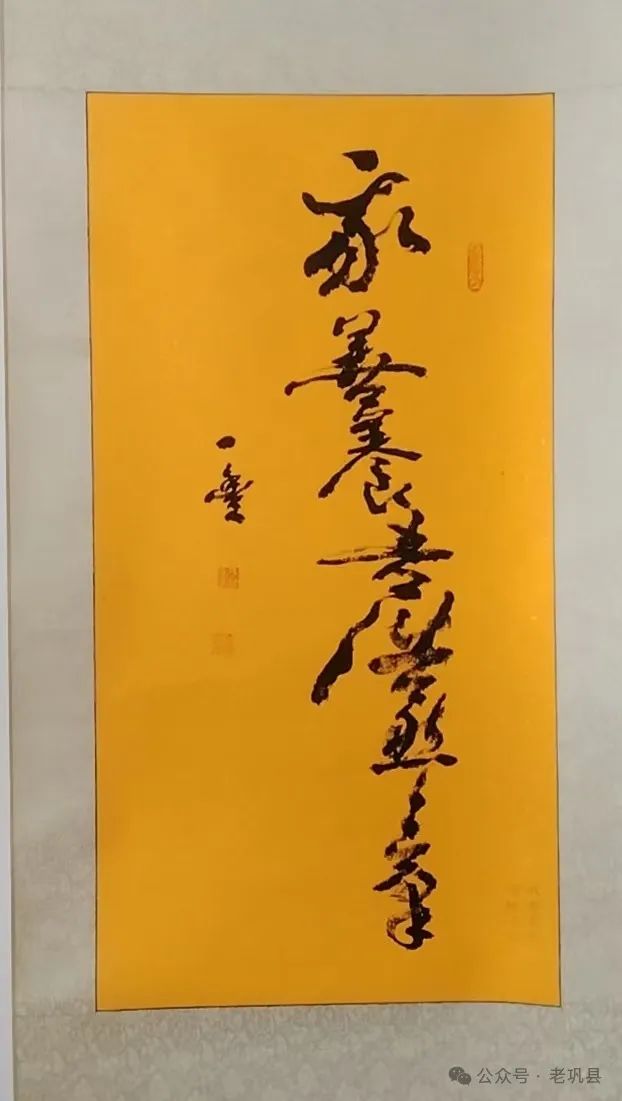 我善養吾浩然之氣
一
公众号·老巩县